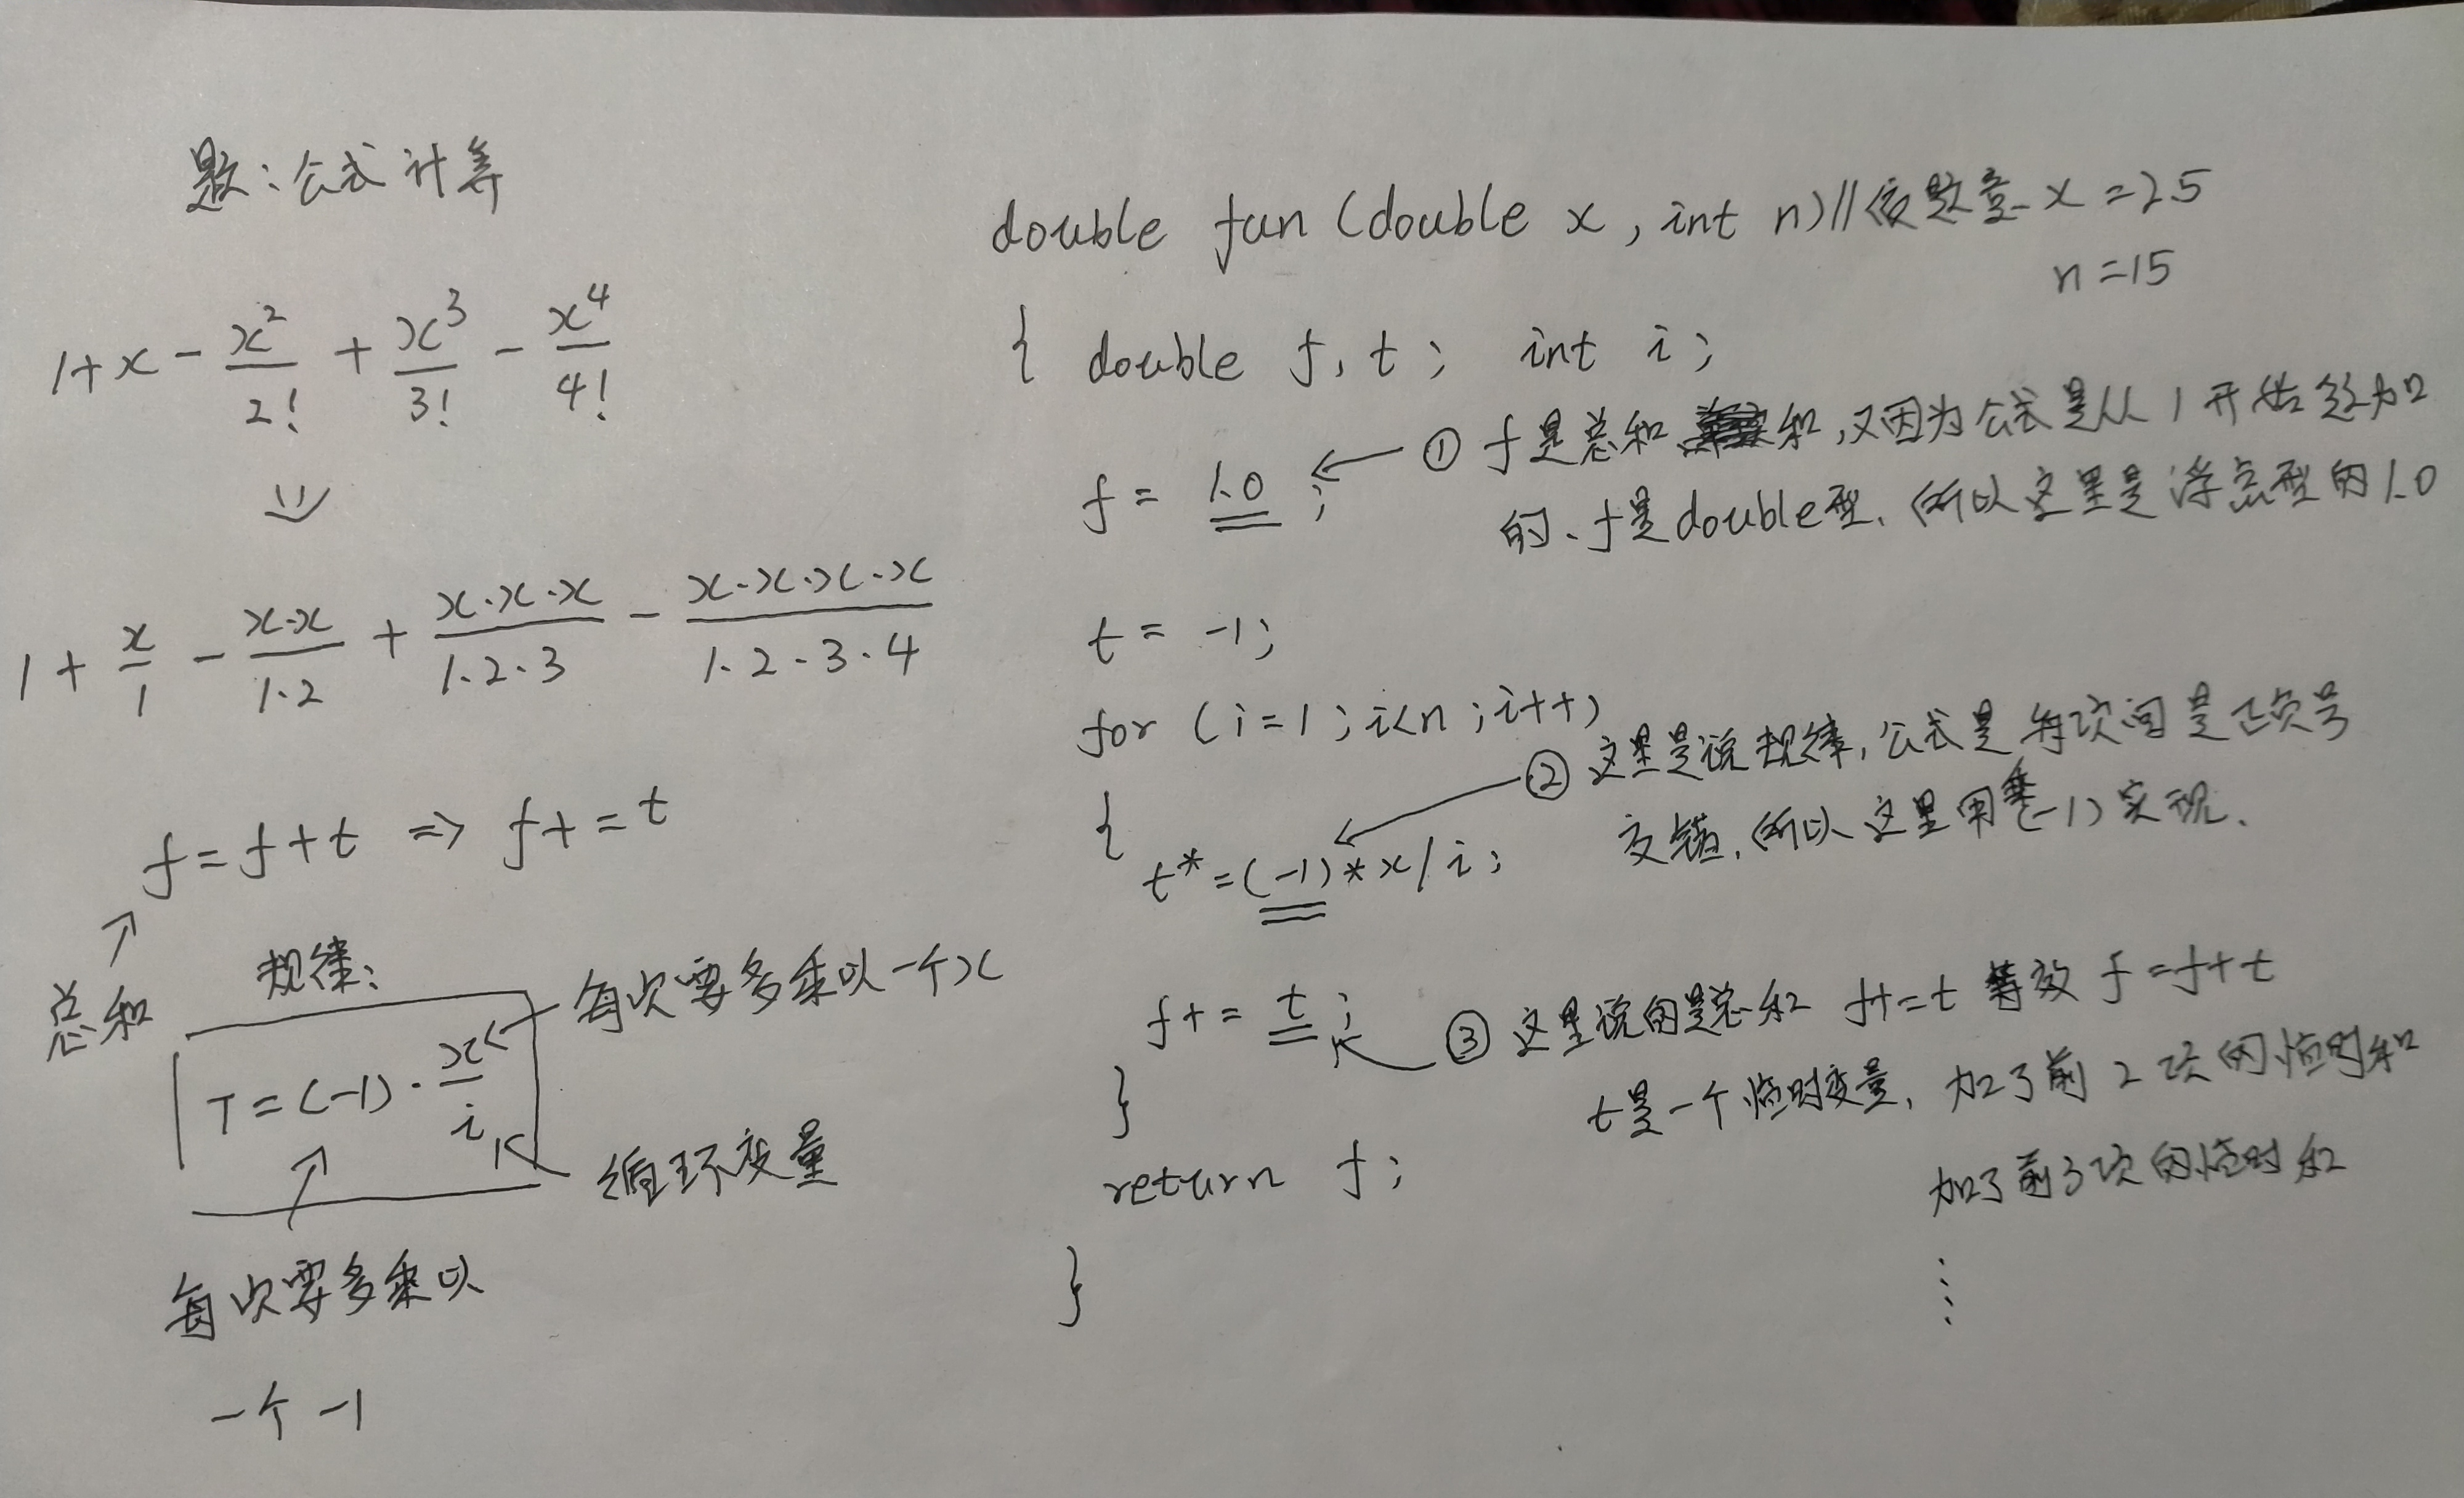 题:公式计算
1+x-x²/2!+x³/3!-x⁴/4!
⇓
1+x/1-x·x/1·2+x·x·x/1·2·3-x·x·x·x/1·2·3·4
f=f+t => f+=t
总和
规律:
每次要多乘以一个x
T=(-1)·x/i
循环变量
每次要多乘以
一个-1
double fun(double x,int n)//依题意x=2.5
n=15
{ double f,t; int i;
f=1.0; ← ① f是总和 和,又因为公式是从1开始往加
的、f是double型、所以这里是浮点型的1.0
t=-1;
for (i=1;i<n;i++)
{ ② 这里是说规律,公式是每次间是正负号
交错,所以这里用乘(-1)实现.
t*=(-1)*x/i;
f+=t; ③ 这里说的是总和 f+=t 等效 f=f+t
t是一个临时变量, 加了前2项的临时和
加了前3项的临时和
⋮
}
return f;
}